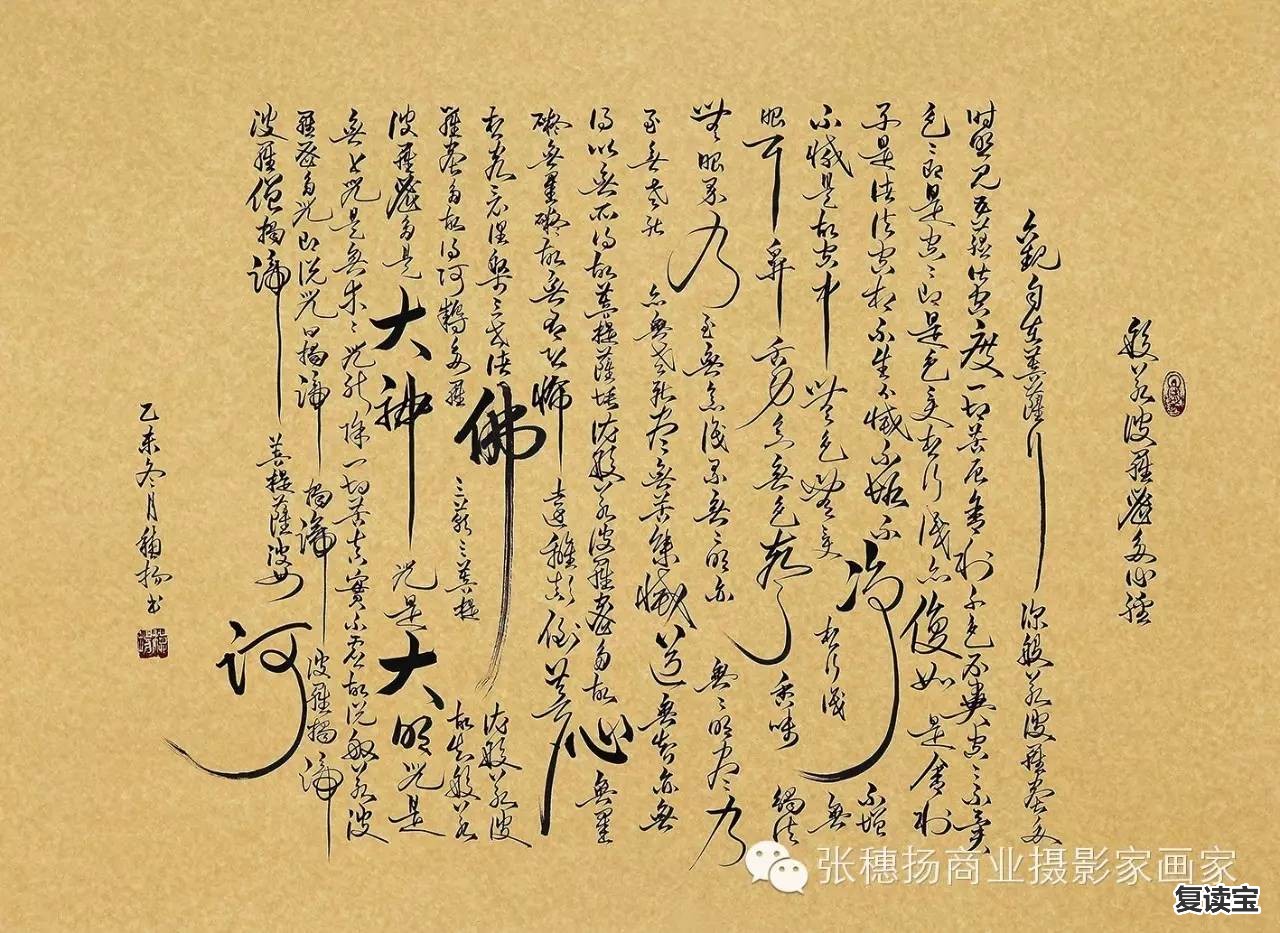 般若波羅蜜多心經
觀自在菩薩行深般若波羅蜜多
時照見五蘊皆空度一切苦厄舍利子色不異空〻不異
色〻即是空〻即是色受想行識亦復如是舍利
子是諸法空相不生不滅不垢不淨不增
不減是故空中無色無受想行識無
眼耳鼻舌身意無色聲香味觸法
無眼界乃至無意識界無〻明亦無〻明盡乃
至無老死亦無老死盡無苦集滅道無智亦無
得以無所得故菩提薩埵依般若波羅蜜多故心無罣
礙無罣礙故無有恐怖遠離顛倒夢
想究竟涅槃三世諸佛依般若波
羅蜜多故得阿耨多羅三藐三菩提故知般若
波羅蜜多是大神咒是大明咒是
無上咒是無等〻咒能除一切苦真實不虛故說般若波
羅蜜多咒即說咒曰揭諦揭諦波羅揭諦
波羅僧揭諦菩提薩婆訶
乙未冬月穗揚书
张穗扬商业摄影家画家
复读宝